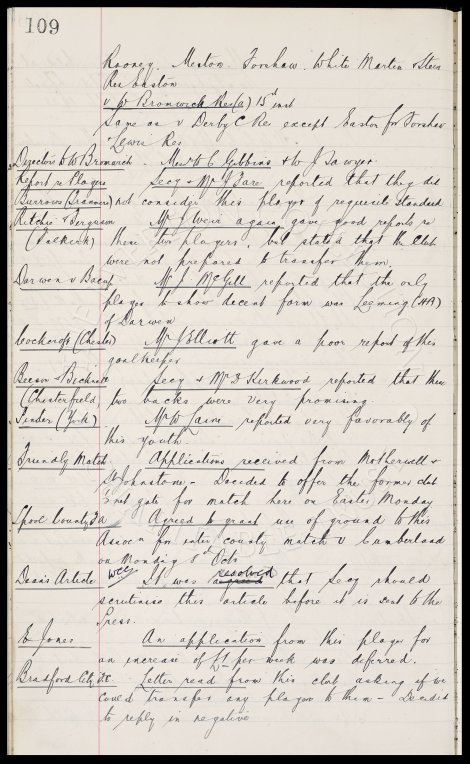 109
Rooney. Meston. Forshaw. White Martin & Steen
Res Easton
v W Bromwich Res (a) 15th inst
Same as v Derby C Res except Easton for Forshaw
Lewis Res
Directors to W Bromwich. Messrs W C Gibbins & W J Sawyer
Report re Players Secy & Mr J Fare reported that they did
Burrows (Tranmere) not consider this player of requisite standard
Ritchie & Ferguson Mr J Weir again gave good reports re
(Falkirk) these two players, but stated that the Club
were not prepared to transfer them.
Darwen v Bacup Mr J McGill reported that the only
player to show decent form was Leeming (HB)
of Darwen
Cockcroft (Chester) Mr J Elliott gave a poor report of this
goalkeeper
Beeson & Bicknell Secy & Mr D Kirkwood reported that these
(Chesterfield) two backs were very promising.
Pinder (York). Mr W Cairns reported very favorably of
this youth.
Friendly Match. Applications received from Motherwell &
St Johnstone - Decided to offer the former club
½ net gate for match here on Easter Monday
Lpool County F A Agreed to grant use of ground to this
Assocn for inter county match v Cumberland
on Monday 8th Octr.
Dean's Article It was resolved that Secy should
scrutinise this article before it is sent to the
Press.
E Jones An application from this player for
an increase of £1 per week was deferred.
Bradford City FC. Letter read from this club asking if we
could transfer any player to them - Decided
to reply in negative